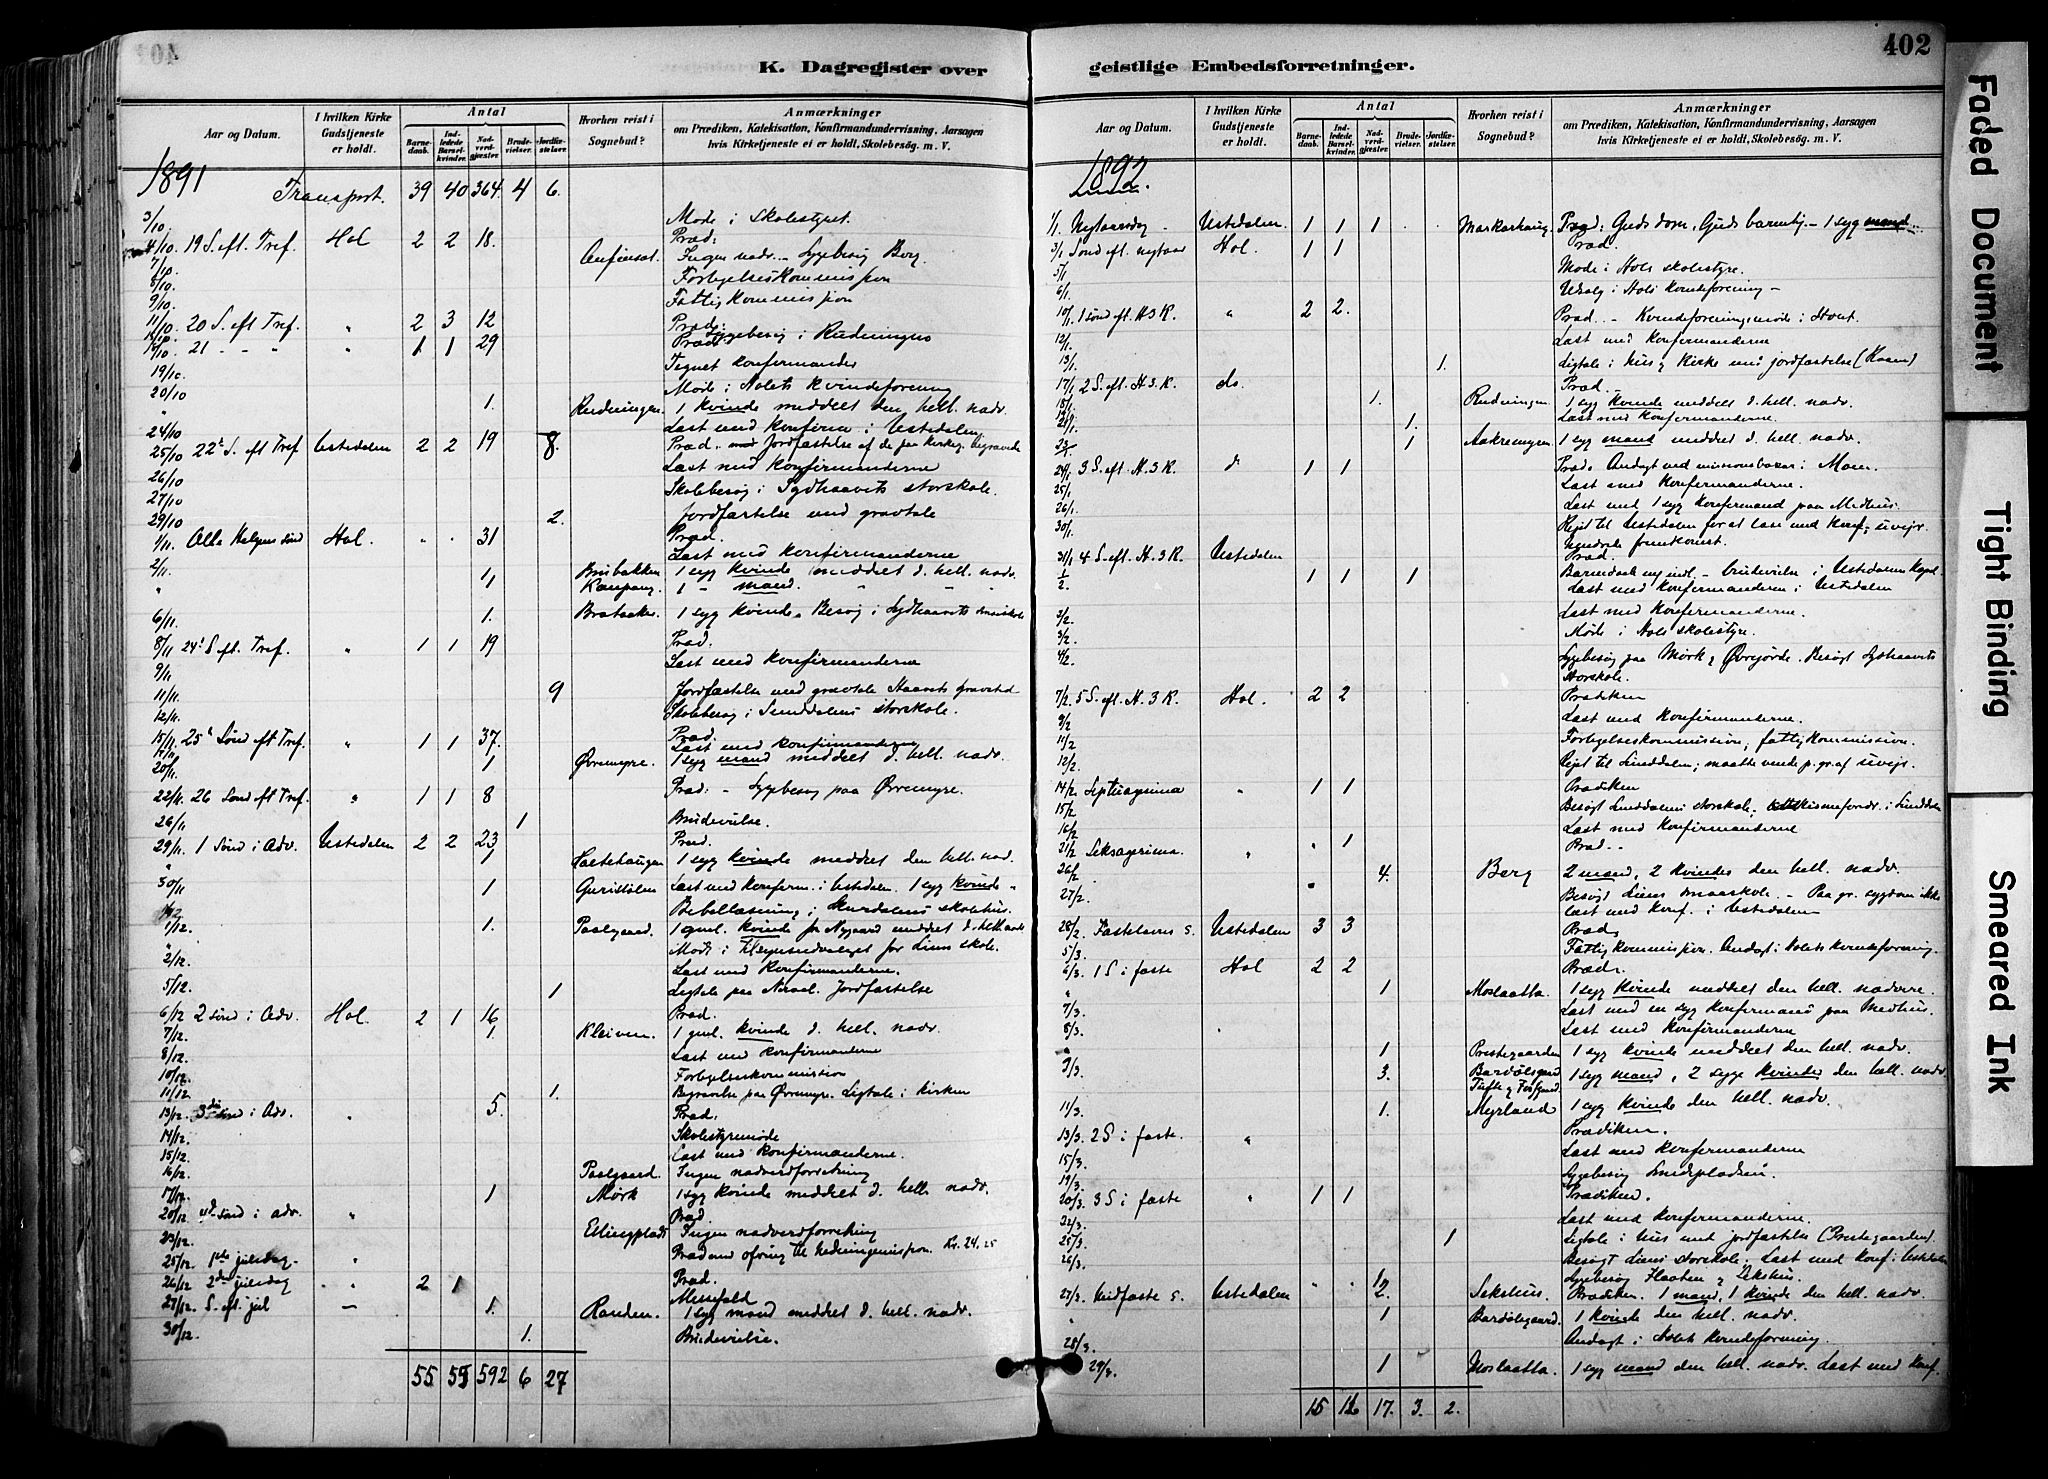 402
K. Dagregister over
Aar og Datum.
I hvilken Kirke Gudstjeneste er holdt.
Antal
Barnedaab.
Indledede Barselkvinder.
Nadverdgjæster.
Brudevielser.
Jordfæstelser.
Hvorhen reist i Sognebud?
Anmærkninger
om Prædiken, Katekisation, Konfirmandundervisning, Aarsagen
hvis Kirketjeneste ei er holdt, Skolebesøg. m. V.
1891 Transport. 39 40 364 4 6.
3/10 Møde i Skolestyret.
4/10. 19 S. eft. Tref. Hol 2 2 18. Præd:
7/10 Ingen nadv. - Sygebesøg Berg
8/10. Forligelseskommission
9/10. Fattigkommission
11/10. 20 S. eft Tref. " 2 3 12 Præd:
Sygebesøg i Rudningens
21 - - " " 1 1 29 Præd:
19/10. Tegnet konfirmander
20/10 Møde i Holets kvindeforening
" 1. Rudningen. 1 kvinde meddelt den hell. nadv.
24/10 Læst med konfirm. i Ustedalen
25/10 22de S. eft Tref Ustedalen 2 2 19 8. Præd. Jordfæstelse af de paa Kirkeg. begravede
26/10 Læst med konfirmanderne
27/10 Skolebesøg i Sydhaavets storskole.
29/10 2. Jordfæstelse med gravtale
1/11. Alle Helgens sønd Hol. " " 31 Præd.
Læst med konfirmanderne
2/11. 1 Brubakken 1 syg kvinde meddelt d. hell. nadv.
" 1 1 - mand. " "
6/11. 1. 1 syg kvinde. Besøg i Sydhaavets småskole
8/11 24de S eft. Tref. " 1 1 19 Præd.
9/11 Læst med konfirmanderne
11/11. 9 Jordfæstelse med gravtale Haavets gravsted
12/11. Skolebesøg i Sunddalens storskole.
15/11. 25de Sønd eft Tref. " 1 1 37. Præd.
Læst med konfirmanderne
20/11. 1 Øvremyre. 1 syg mand meddelt d. hell. nadv.
22/11. 26 Sønd eft Tref. " 1 1 8 Præd: - Sygebesøg paa Øvremyre.
26/11 1 Brudevielse.
29/11. 1 Sønd i Adv. Ustedalen 2 2 23 Præd.
" 1 Holtehaugen 1 syg kvinde meddelt den hell. nad.
30/11 1 Guristølen Læst med konferm. i Ustedalen. 1 syg kvinde "
Bibellæsning i Skurdalens skolehus.
1/12. 1. Paalgaard. 1 gml. kvinde fr Nygaard meddelt d. hell. nadv
" Møde i tilsynsudvalget for Liens skole.
2/12 Læst med konfirmanderne.
5/12. 1 Ligtale paa Neraal. Jordfæstelse
6/12 2 sønd i Adv. Hol. 2 1 16 Præd.
7/12. 1. Kleiven. 1 gml. kvinde d. hell. nadv.
8/12. Læst med konfirmanderne
10/12. Forligelseskommission
11/12 1. Begravelse paa Øvremyre. Ligtale i kirken
13/12. 3die sønd i Adv. " 5. Præd:
14/12. Skolestyremøde
15/12. Læst med konfirmanderne.
16/12 Paalgaard. Ingen nadverdforretning
17/12. 1 Mørk 1 syg kvinde meddelt d. hell. nadv.
20/12 4de sønd i adv. " Præd
23/12. Ellingplads Ingen nadverdforretning
25/12. 1ste juledag. " Præd med ofring til hedningemission. Kr. 24,25
26/12 2den juledag " 2 1 Præd.
27/12. S. eft. jul - Messefald
1. Randen. 1 syg mand meddelt d. hell. nadv.
30/12. 1. Brudevielse.
55 55 592 6 27
402
geistlige Embedsforretninger.
Aar og Datum.
I hvilken Kirke Gudstjeneste er holdt.
Antal
Barnedaab.
Indledede Barselkvinder.
Nadverdgjæster.
Brudevielser.
Jordfæstelser.
Hvorhen reist i Sognebud?
Anmærkninger
om Prædiken, Katekisation, Konfirmandundervisning, Aarsagen
hvis Kirketjeneste ei er holdt, Skolebesøg. m. V.
1892.
1/1. Nytaarsdag - Ustedalen 1 1 1 Markarhaug Præd: Guds dom, Guds barmhj. - 1 syg mand
3/1 Sønd eft. nytaar Hol. 1 1 Præd
5/1 Møde i Hols skolestyre.
6/1. Udvalg i Hols kvindeforening -
10/1. 1 sønd eft. H.3K. " 2 2. Præd. - Kvindeforeningsmøde i Hovt.
12/1. Læst med konfirmanderne
13/1. 1. Ligtale i hus & kirke med jordfæstelse
17/1 2 S. eft. H.3.K. do. Præd. -
18/1. 1. Rudningen. 1 syg kvinde meddelt d. hell. nadv.
1. Læst med konfirmanderne.
1 Aakremyren. 1 syg mand meddelt d. hell. nadv.
24/1 3 S. eft. H.3K. d. 1 1 Præd. Andagt ved missionsbazar i Moen.
25/1. Læst med konfirmanderne.
26/1. Læst med 1 syg konfirmand paa Medhus.
30/1. Rejst til Ustedalen for at læse med konf.; uvejr
hindrede fremkomst.
31/1 4 S. eft. H.3K. Ustedalen Præd.
1/2. 1 1 1 Barnedaab og indl. - brudevielse i Ustedalen kapel
Læst med konfirmanderne i Ustedalen
3/2. Læst med konfirmanderne.
3/2. Møde i Hols skolestyre.
4/2. Sygebesøg paa Mørk & Øvrejorde. Besøgt Sydhaavets
storskole.
7/2. 5 S. eft. H.3K. Hol. 2 2 Prædiken
9/2 Læst med konfirmanderne.
11/2 Forligelseskommission; fattigkommission.
12/2. Rejst til Sunddalen; maatte vende p. gr. af uvejr.
14/2. Septuagesima " 1 1 Prædiken
15/2 Besøgt Sunddalens storskole; i Sunddalen
16/2 Læst med konfirmanderne
21/2 Seksagesima. " " 1 Præd. -
26/2 4. Berg 2 mænd, 2 kvinder den hell. nadv.
27/2. Besøgt Liens smaaskole. - Paa gr. sygdom ikke
læst med konf. i Ustedalen
28/2. Fastelavns s. Ustedalen 3 3 Præd.
5/3. Fattigkommission. Andagt i Holets kvindeforening.
6/3. 1 S i faste Hol 2 2 Præd.
" 1 Moslaatta. 1 syg kvinde meddelt den hell. nadvere.
7/3. Læst med en syg konfirmand paa Medhus.
8/3. Læst med konfirmanderne
" 1 Prestegaarden 1 syg kvinde meddelt den hell. nadv.
9/3. 3. Bardølsgaard Tufte & 1 syg mand, 2 syge kvinder den hell. nadv
11/3. 1. Myrland 1 syg kvinde den hell. nadv.
13/3. 2 S i faste. " Prædiken.
15/3. Læst med konfirmanderne
19/3. Sygebesøg Smedpladsen.
20/3. 3 S i faste " 1 1 Prædiken.
22/3. Læst med konfirmanderne.
25/3. 1 Ligtale i hus med jordfæstelse (Prestegaarden)
26/3. Besøgt Liens storskole. Læst med konf. i Ustedalen
Sygebesøg Haaten & Sekshus.
27/3. Midfaste s. Ustedalen " " 2. Sekshus. Prædiken. 1 mand, 1 kvinde den hell. nadv.
" 1 Bardølsgaard. 1 kvinde den hell. nadv.
28/3. Andagt i Holets kvindeforening.
29/3. 1 Moslaatta. 1 syg mand den hell. nadv. Læst med konf.
15 16 17. 3. 2.
Faded Document
Tight Binding
Smeared Ink